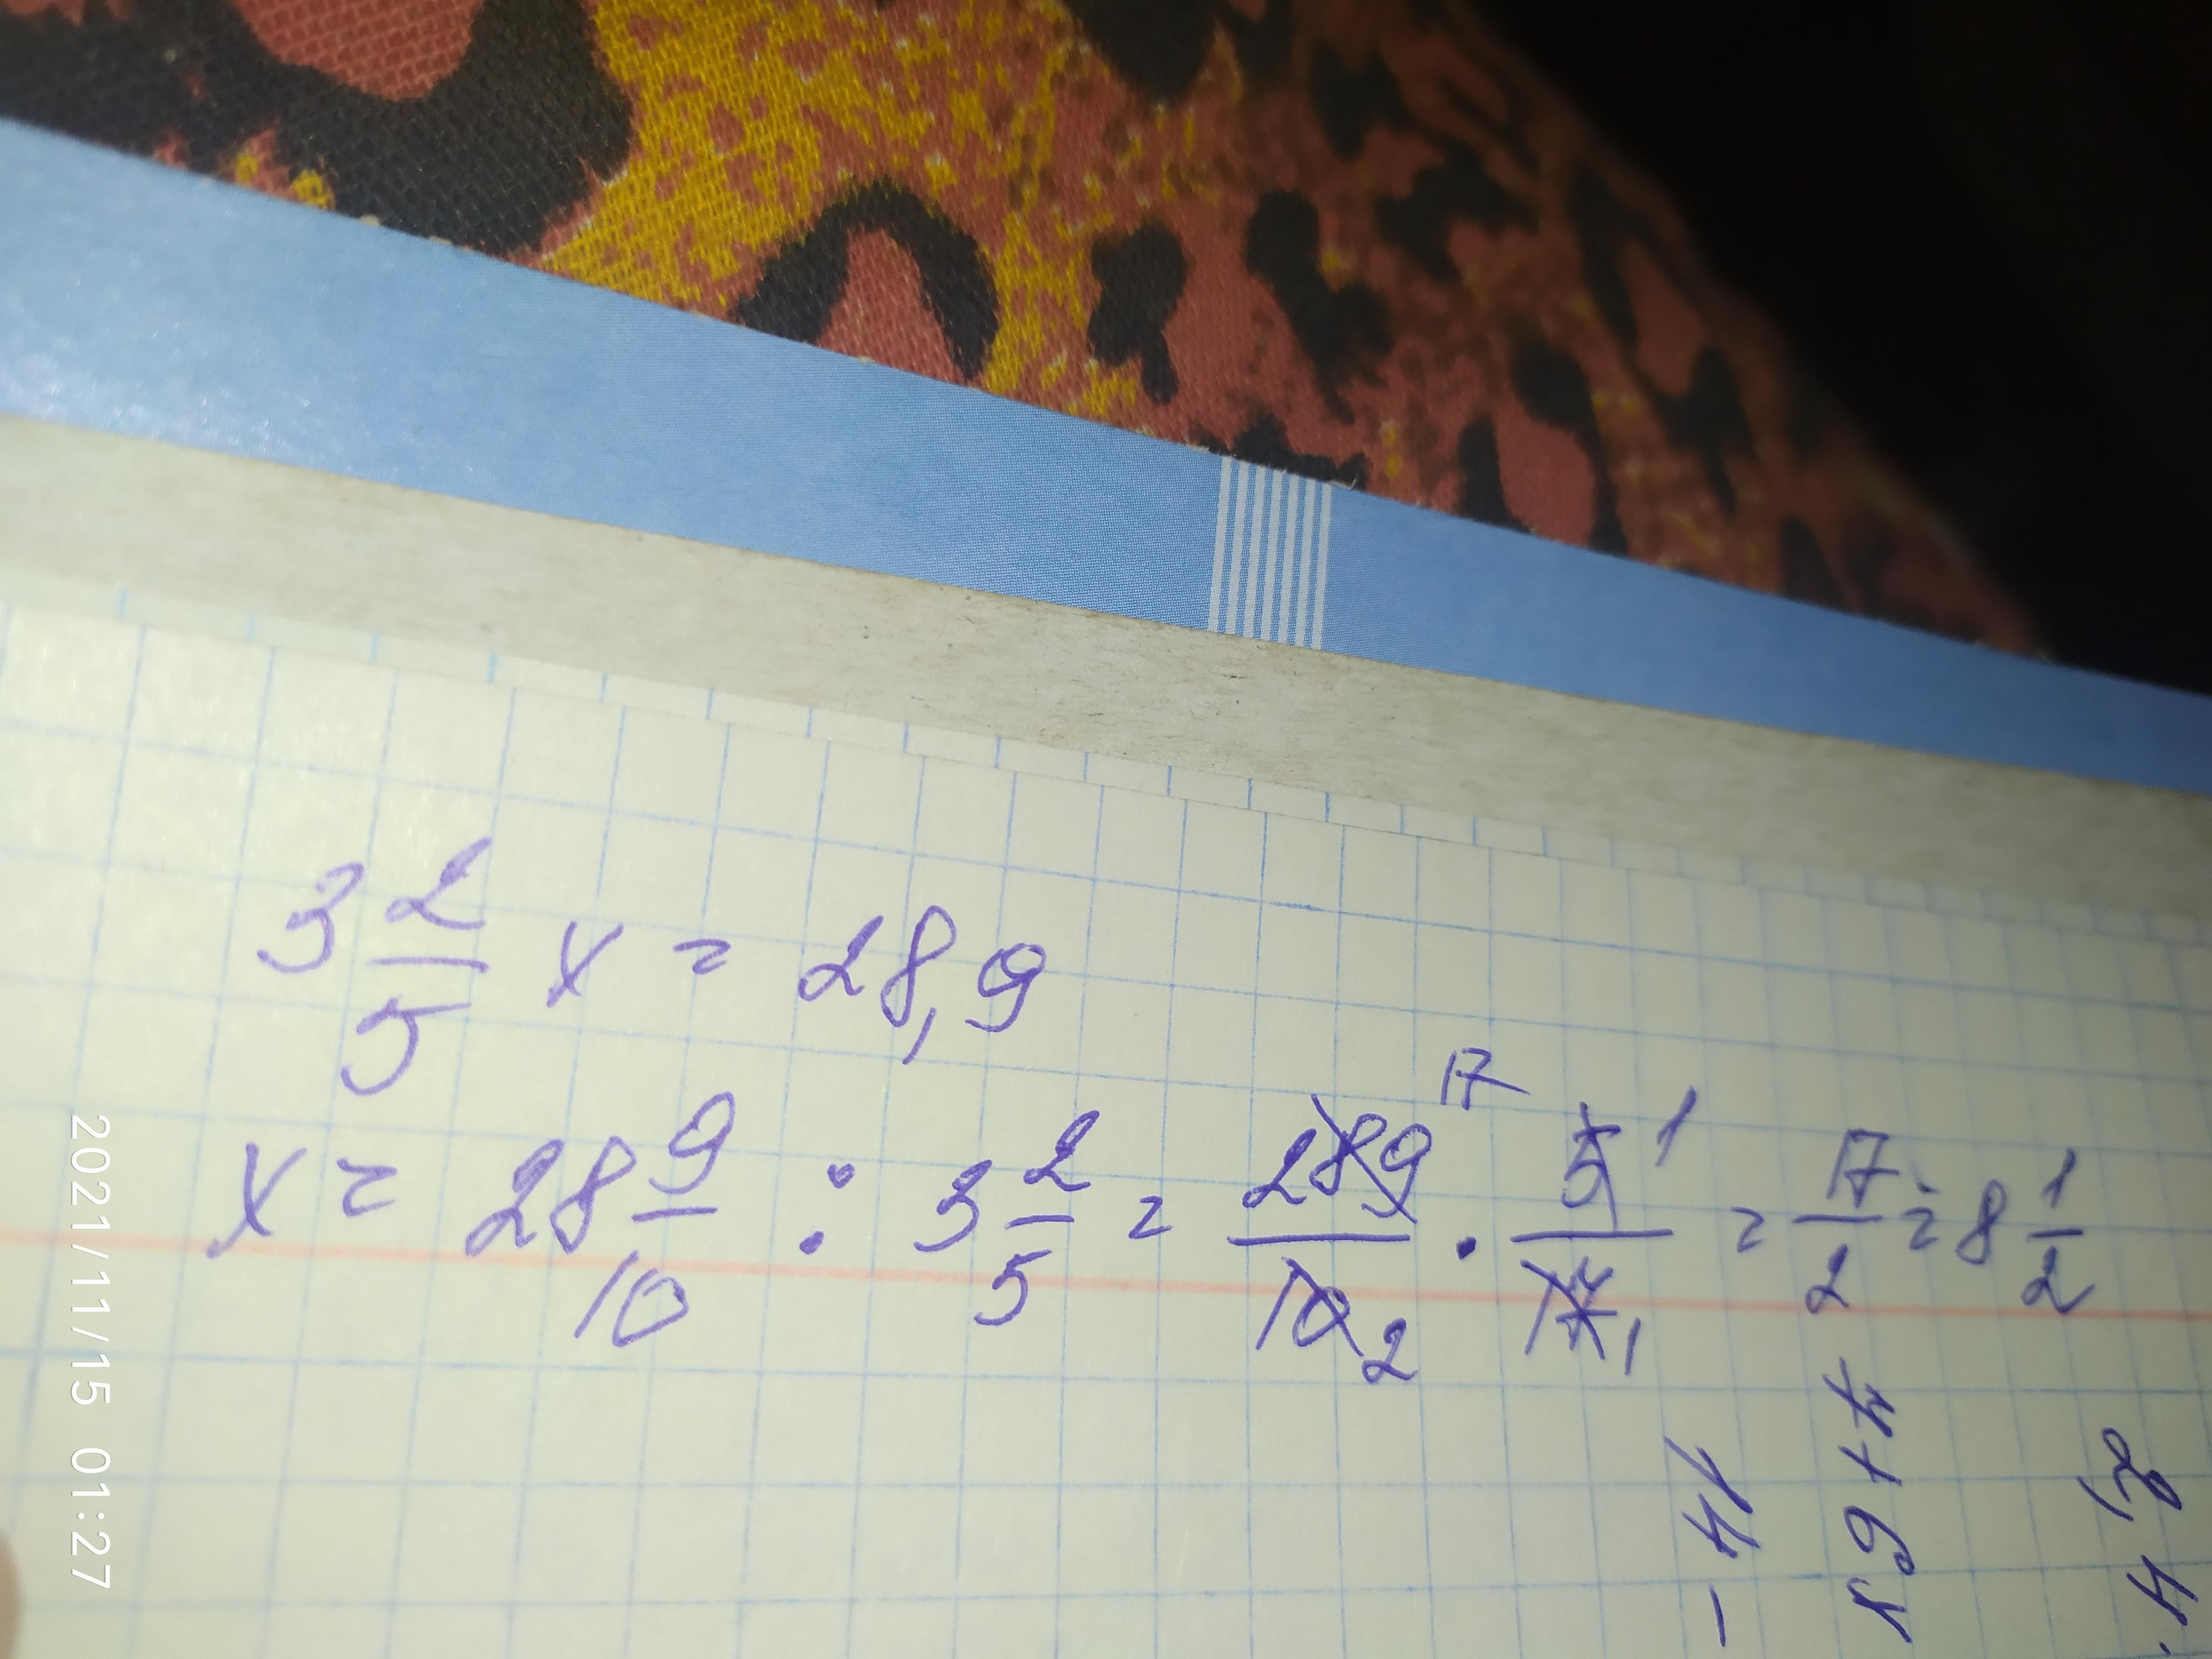 3 2/5 x = 28,9
x = 28 9/10 : 3 2/5 = 289/10 · 5/17 = 17/2 = 8 1/2
17 1
2 1
2021/11/15 01:27